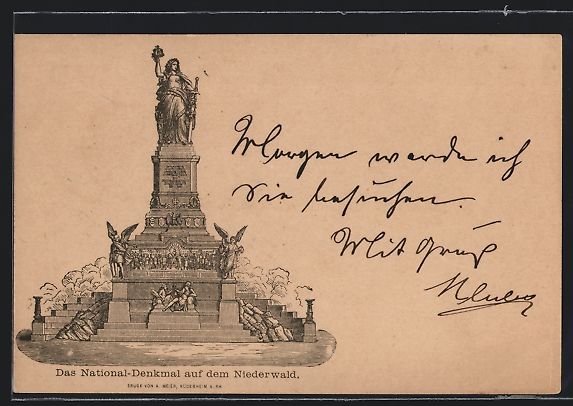 Morgen werde ich
Sie besuchen.
Mit Gruß
Das National-Denkmal auf dem Niederwald.
DRUCK VON A. MEIER, RÜDESHEIM A. RH.